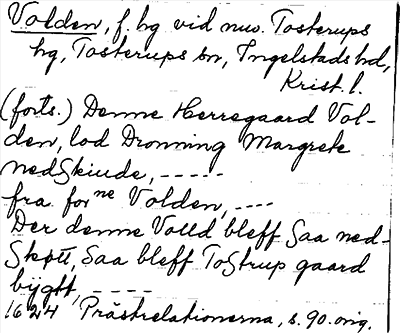 Volden, f. hg vid nuv. Tosterups
hg, Tosterups sn, Ingelstads hd,
Krist. l.
(forts.) Denne Herregaard Vol-
den, lod Dronning Margrete
nedskiude, -----
fra forne Volden, ----
Der denne Volld bleff Saa ned-
Skøtt, Saa bleff ToStrup gaard
bÿgtt, ----
1624 Prästrelationerna, s. 90. orig.